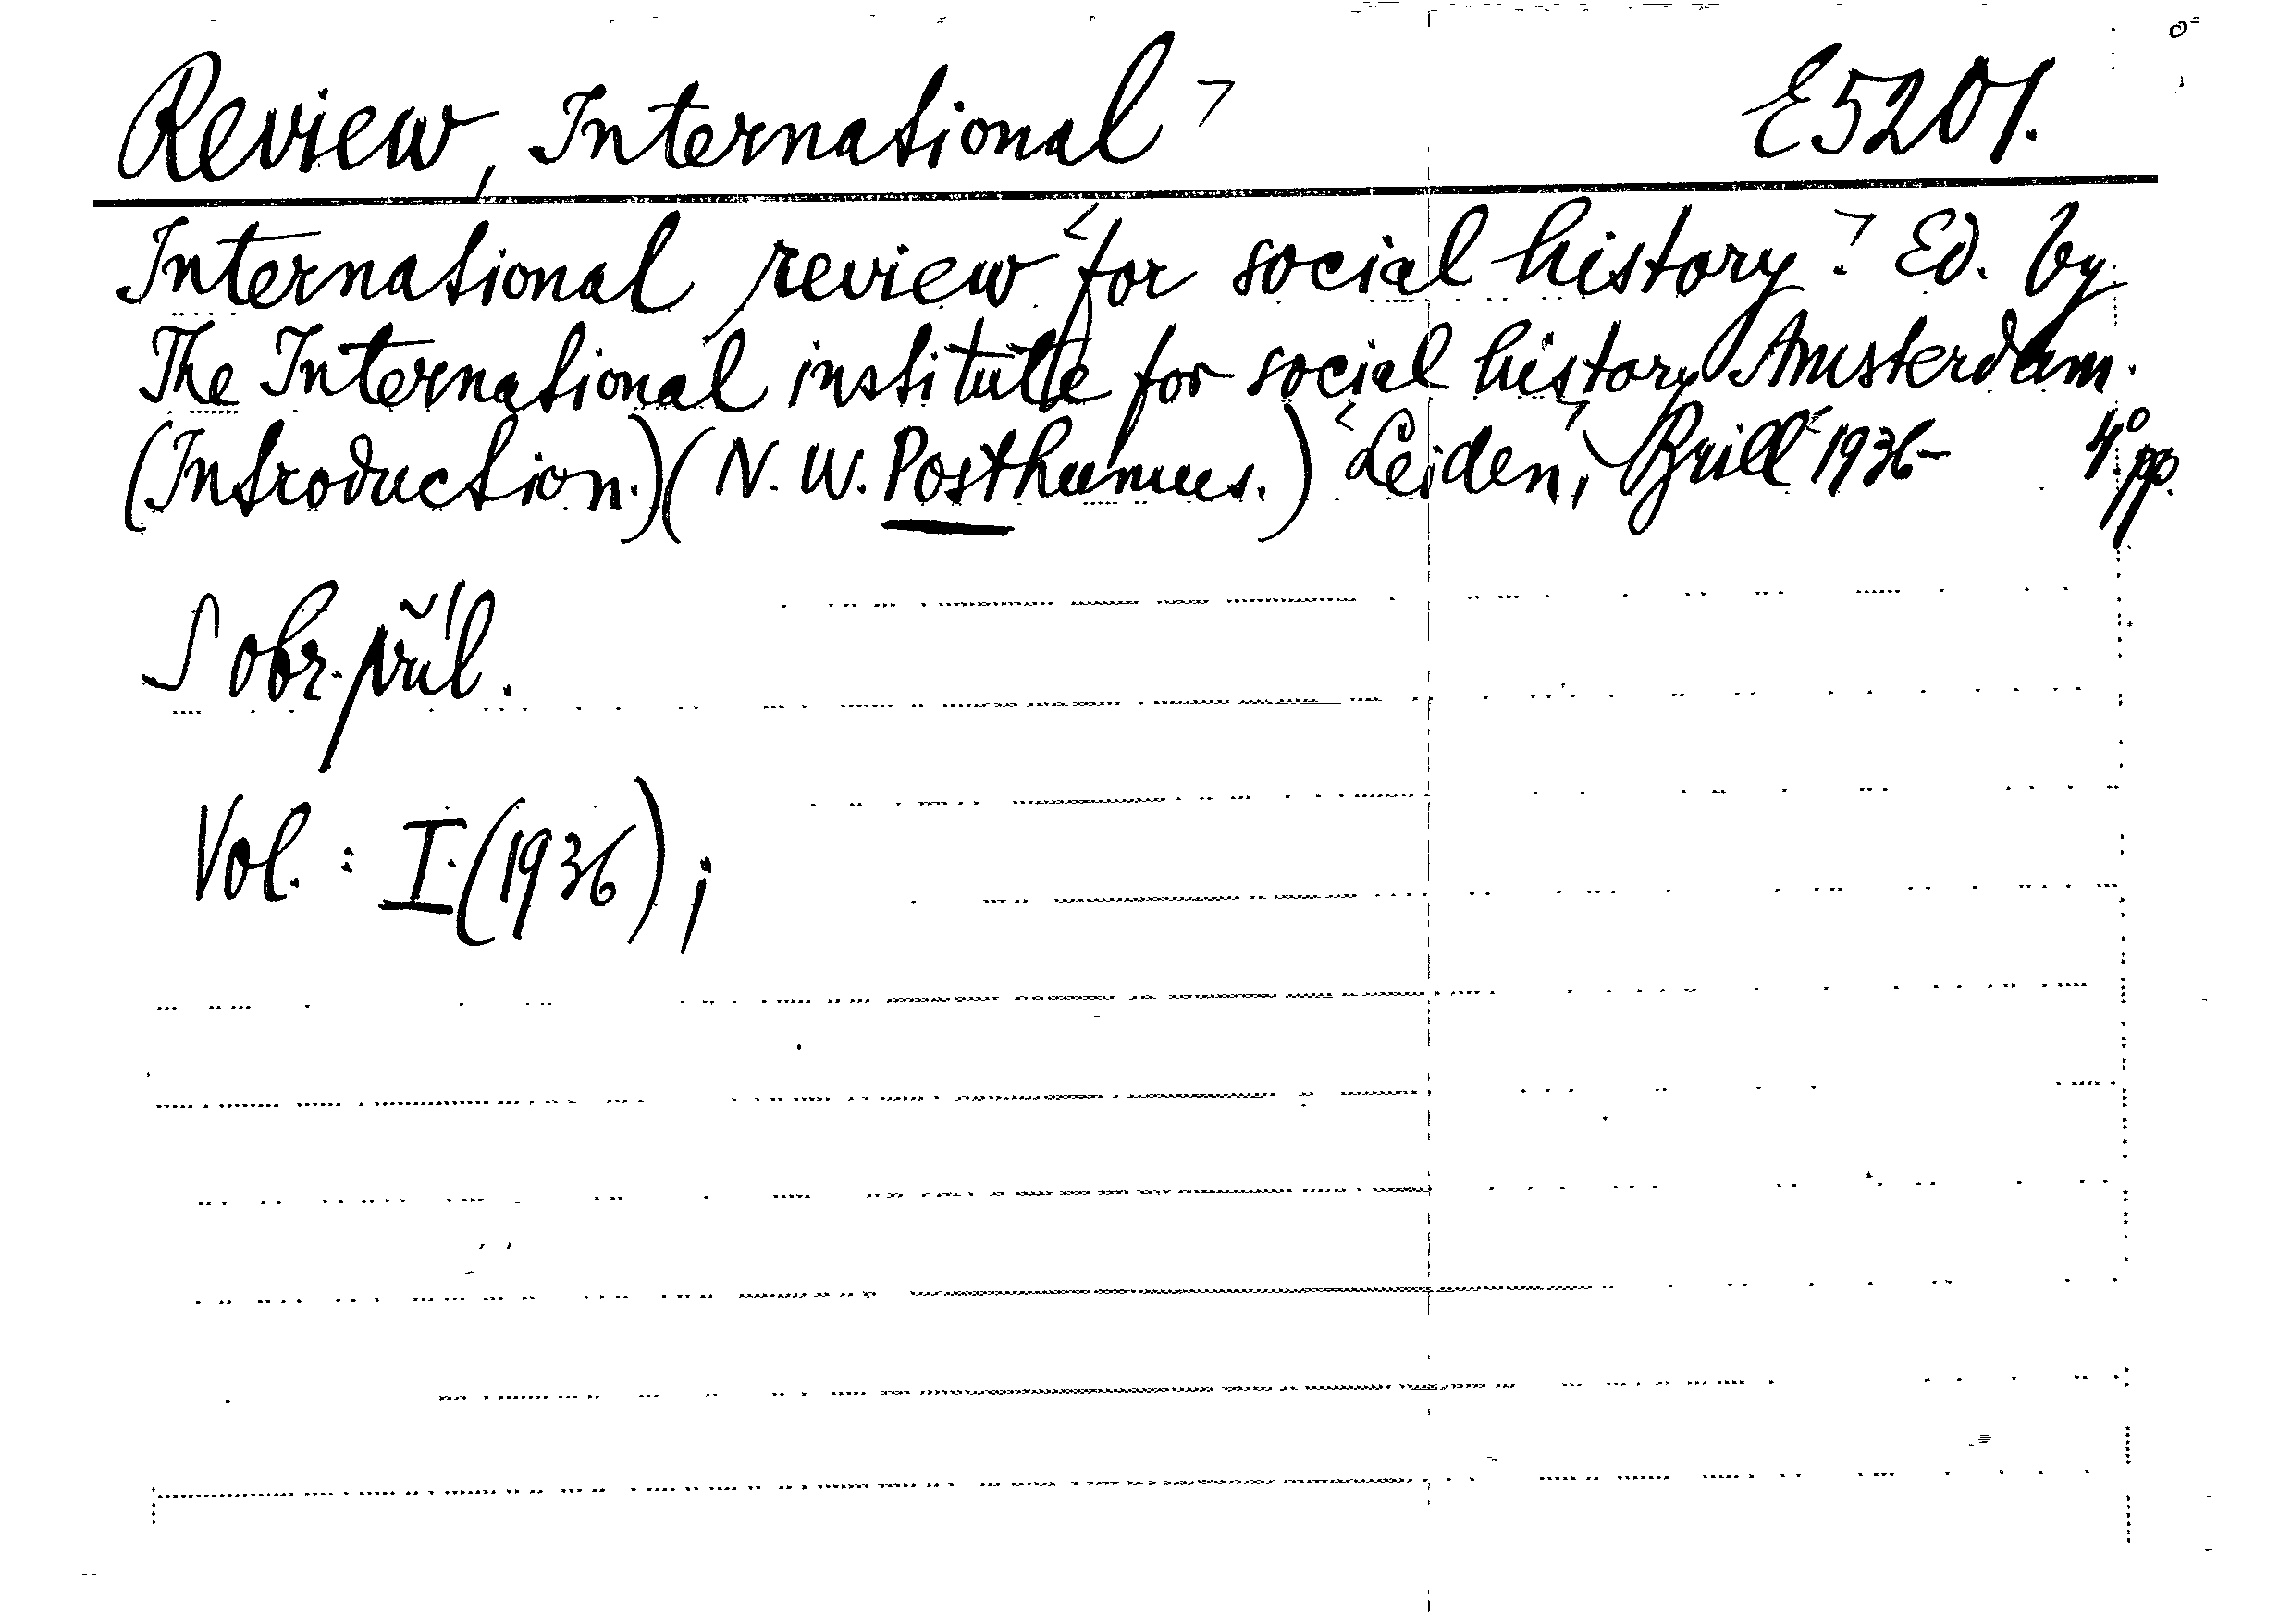 Review, International E5201.
International review for social history. Ed. by
The International institute for social history Amsterdam.
(Introduction.) (N. W. Posthumus.) Leiden, Brill 1936- 4° pp.
S obr. příl.
Vol. : I. (1936) ;